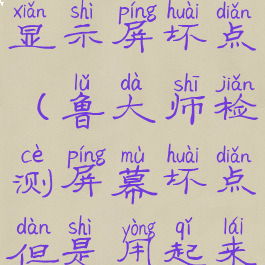 xiǎn shì píng huài diǎn
显示屏坏点
lǔ dà shī jiǎn
（鲁大师检
cè píng mù huài diǎn
测屏幕坏点
dàn shì yòng qǐ lái
但是用起来